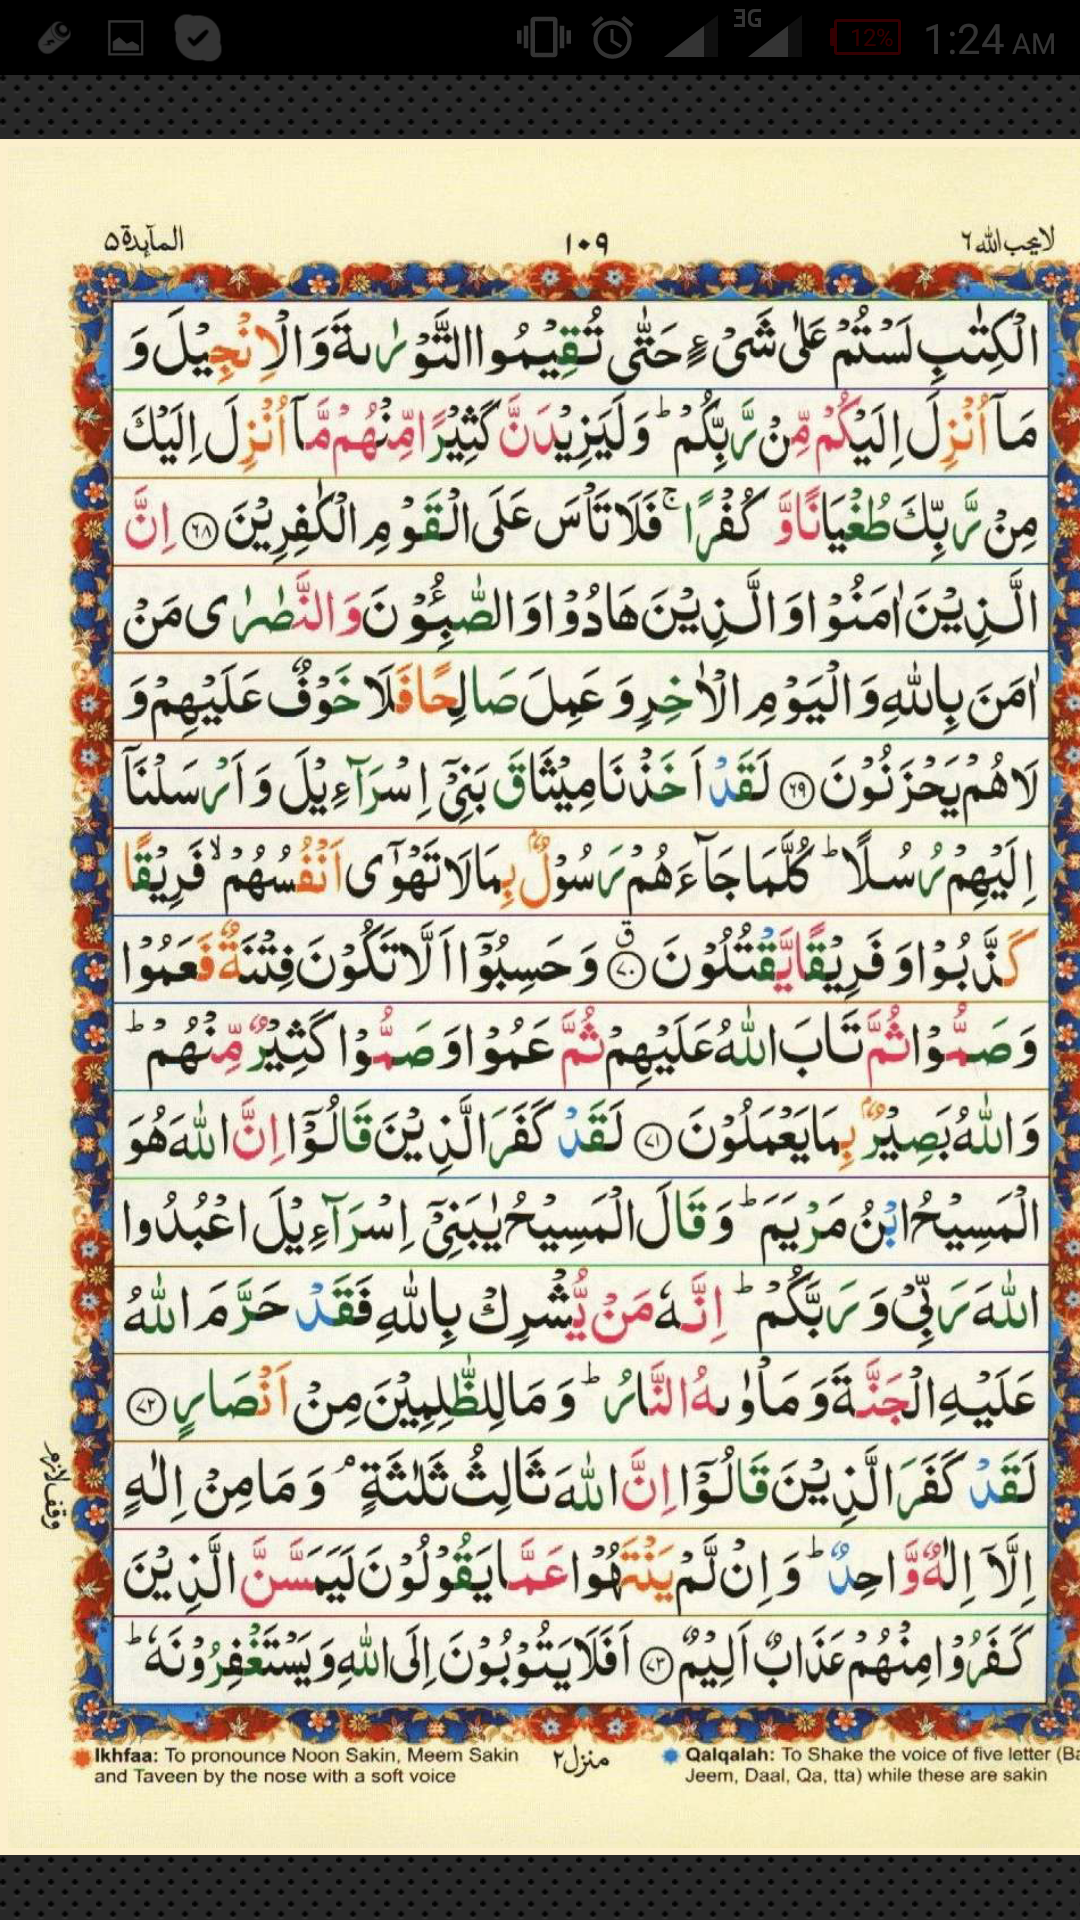 3G 12% 1:24 AM
لا یحب الله ٦ ١٠٩ المآىِٕدة ٥
الْكِتٰبِ لَسْتُمْ عَلٰى شَیْءٍ حَتّٰى تُقِیْمُوا التَّوْرٰىةَ وَ الْاِنْجِیْلَ وَ
مَاۤ اُنْزِلَ اِلَیْكُمْ مِّنْ رَّبِّكُمْ ؕ وَ لَیَزِیْدَنَّ كَثِیْرًا مِّنْهُمْ مَّاۤ اُنْزِلَ اِلَیْكَ
مِنْ رَّبِّكَ طُغْیَانًا وَّ كُفْرًا ۚ فَلَا تَاْسَ عَلَى الْقَوْمِ الْكٰفِرِیْنَ ۝٦٨ اِنَّ
الَّذِیْنَ اٰمَنُوْا وَ الَّذِیْنَ هَادُوْا وَ الصّٰبِـُٔوْنَ وَ النَّصٰرٰى مَنْ
اٰمَنَ بِاللّٰهِ وَ الْیَوْمِ الْاٰخِرِ وَ عَمِلَ صَالِحًا فَلَا خَوْفٌ عَلَیْهِمْ وَ
لَا هُمْ یَحْزَنُوْنَ ۝٦٩ لَقَدْ اَخَذْنَا مِیْثَاقَ بَنِیْۤ اِسْرَآءِیْلَ وَ اَرْسَلْنَاۤ
اِلَیْهِمْ رُسُلًا ؕ كُلَّمَا جَآءَهُمْ رَسُوْلٌۢ بِمَا لَا تَهْوٰۤى اَنْفُسُهُمْ ۙ فَرِیْقًا
كَذَّبُوْا وَ فَرِیْقًا یَّقْتُلُوْنَ ۝٧٠ۗ وَ حَسِبُوْۤا اَلَّا تَكُوْنَ فِتْنَةٌ فَعَمُوْا
وَ صَمُّوْا ثُمَّ تَابَ اللّٰهُ عَلَیْهِمْ ثُمَّ عَمُوْا وَ صَمُّوْا كَثِیْرٌ مِّنْهُمْ ؕ
وَ اللّٰهُ بَصِیْرٌۢ بِمَا یَعْمَلُوْنَ ۝٧١ لَقَدْ كَفَرَ الَّذِیْنَ قَالُوْۤا اِنَّ اللّٰهَ هُوَ
الْمَسِیْحُ ابْنُ مَرْیَمَ ؕ وَ قَالَ الْمَسِیْحُ یٰبَنِیْۤ اِسْرَآءِیْلَ اعْبُدُوا
اللّٰهَ رَبِّیْ وَ رَبَّكُمْ ؕ اِنَّهٗ مَنْ یُّشْرِكْ بِاللّٰهِ فَقَدْ حَرَّمَ اللّٰهُ
عَلَیْهِ الْجَنَّةَ وَ مَاْوٰىهُ النَّارُ ؕ وَ مَا لِلظّٰلِمِیْنَ مِنْ اَنْصَارٍ ۝٧٢
لَقَدْ كَفَرَ الَّذِیْنَ قَالُوْۤا اِنَّ اللّٰهَ ثَالِثُ ثَلٰثَةٍ ۘ وَ مَا مِنْ اِلٰهٍ
وقف لازم
اِلَّاۤ اِلٰهٌ وَّاحِدٌ ؕ وَ اِنْ لَّمْ یَنْتَهُوْا عَمَّا یَقُوْلُوْنَ لَیَمَسَّنَّ الَّذِیْنَ
كَفَرُوْا مِنْهُمْ عَذَابٌ اَلِیْمٌ ۝٧٣ اَفَلَا یَتُوْبُوْنَ اِلَى اللّٰهِ وَ یَسْتَغْفِرُوْنَهٗ ؕ
Ikhfaa: To pronounce Noon Sakin, Meem Sakin
and Taveen by the nose with a soft voice
منزل ٢
Qalqalah: To Shake the voice of five letter (Ba
Jeem, Daal, Qa, tta) while these are sakin